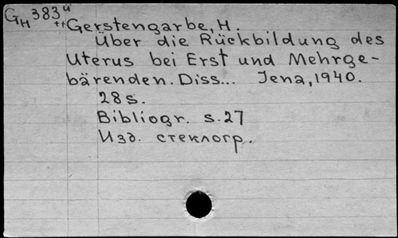 GH 383u
++ Gerstengarbe, H.
Über die Rückbildung des
Uterus bei Erst und Mehrge-
bärenden. Diss... Jena, 1940.
28s.
Bibliogr. s.27
Изд. стеклогр.